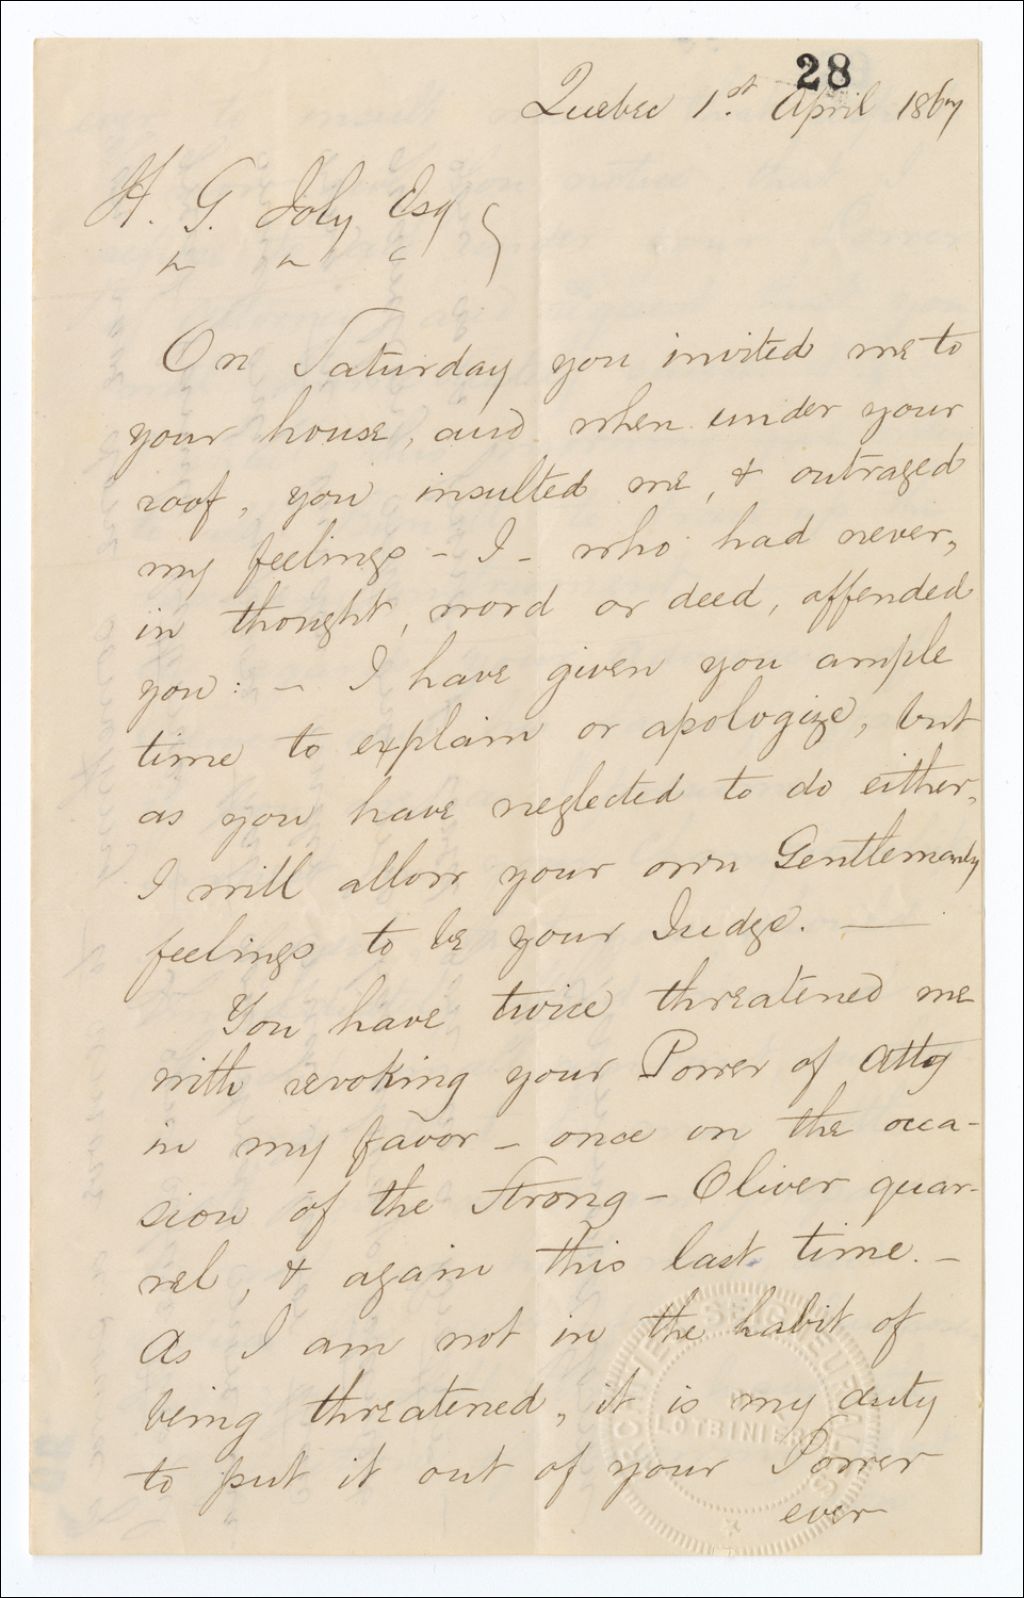 28
Quebec 1st. April 1867
H. G. Joly Esq
" " "
On Saturday you invited me to
your house, and when under your
roof, you insulted me, & outraged
my feelings - I - who had never,
in thought, word or deed, offended
you: - I have given you ample
time to explain or apologize, but
as you have neglected to do either,
I will allow your own Gentlemanly
feelings to be your Judge. —
You have twice threatened me
with revoking your Power of Atty
in my favor - once on the occa-
sion of the Strong - Oliver quar-
rel, & again this last time. -
As I am not in the habit of
being threatened, it is my duty
to put it out of your Power
ever
LOTBINIERE